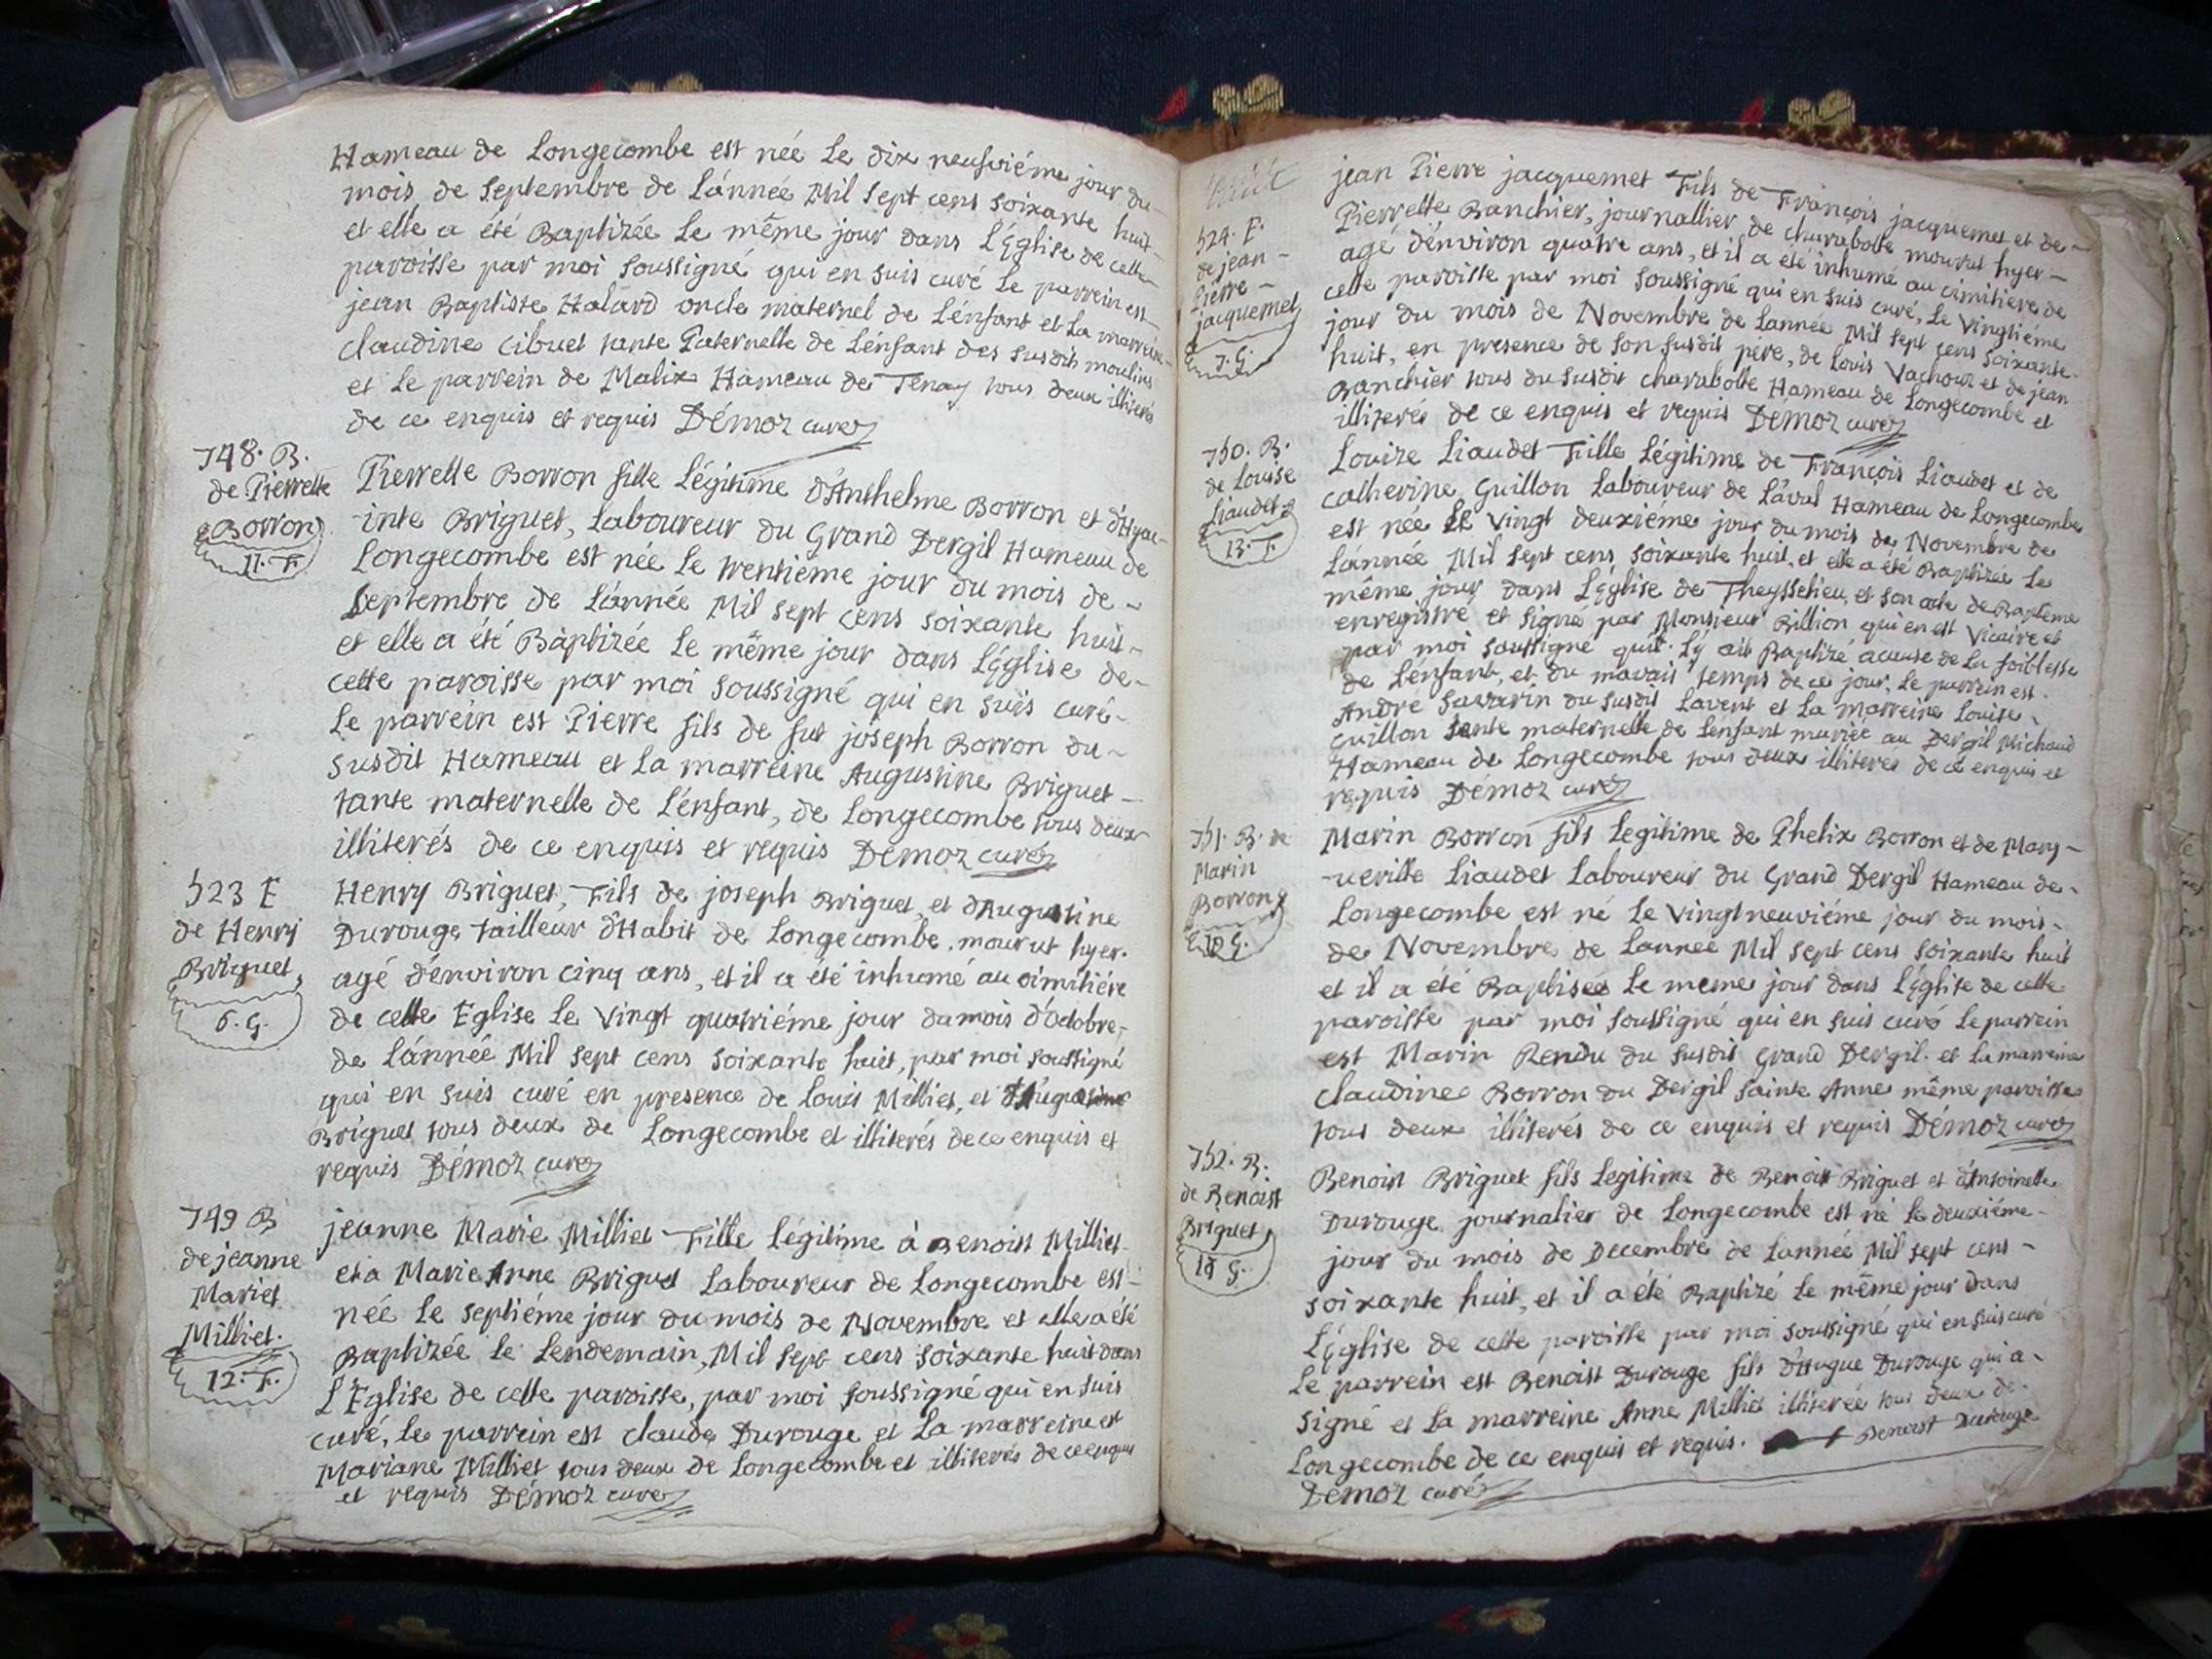 Hameau de Longecombe est née Le dix neufviéme jour du
mois de Septembre de L'année Mil Sept cens soixante huit
et elle a été Baptizée Le même jour dans L'Eglise de cette
paroisse par moi soussigné qui en suis curé Le parrein est
jean Baptiste Halard oncle maternel de L'énfant et La marreine
claudine Cibuet tante Paternelle de L'énfant des susdits moulins
et Le parrein de Malix Hameau de Tenay tous deux illiterés
de ce enquis et requis Démoz curé
748. B.
de Pierrette
Borron
11. F.
Pierrette Borron fille Légitime d'Anthelme Borron et d'Hyac-
inte Briguet, Laboureur du Grand Dergil Hameau de
Longecombe est née Le trentiéme jour du mois de
Septembre de L'année Mil sept cens soixante huit
et elle a été Baptizée Le même jour dans L'Eglise de
cette paroisse par moi soussigné qui en suis curé
Le parrein est Pierre fils de fut joseph Borron du
susdit Hameau et La marreine Augustine Briguet
tante maternelle de L'énfant, de Longecombe tous deux
illiterés de ce enquis et requis Démoz curé
523 E
de Henry
Briguet
6. G.
Henry Briguet, Fils de joseph Briguet, et d'Augustine
Durouge tailleur d'Habit de Longecombe, mourut hyer
agé d'énviron cinq ans, et il a été inhumé au cimitiére
de cette Eglise Le vingt quatriéme jour du mois d'Octobre
de L'année Mil sept cens soixante huit, par moi soussigné
qui en suis curé en presence de Louis Milliet, et d'Augustine
Briguet tous deux de Longecombe et illiterés de ce enquis et
requis Démoz curé
749 B
de jeanne
Marie
Milliet.
12. F.
jeanne Marie Milliet Fille Légitime à Benoist Milliet
et a Marie Anne Briguet Laboureur de Longecombe est
née Le septiéme jour du mois de Novembre et elle a été
Baptizée Le Lendemain, Mil Sept cens soixante huit dans
L'Eglise de cette paroisse, par moi soussigné qui en suis
curé, Le parrein est claude Durouge et La marreine et
Mariane Milliet tous deux de Longecombe et illiterés de ce enquis
et requis Démoz curé
524. E.
de jean
Pierre
jacquemet
7. G.
jean Pierre jacquemet Fils de François jacquemet et de
Pierrette Banchier, journallier de charabotte mourut hyer
agé d'énviron quatre ans, et il a été inhumé au cimitiere de
cette paroisse par moi soussigné qui en suis curé, Le vingtiéme
jour du mois de Novembre de Lannée Mil sept cens soixante
huit, en presence de son susdit pére, de Louis Vachoux et de jean
Banchier tous du susdit charabotte Hameau de Longecombe et
illiterés de ce enquis et requis Démoz curé
750. B.
de Louise
Liaudet
13. F.
Louize Liaudet Fille Légitime de François Liaudet et de
catherine Guillon Laboureur de Laval Hameau de Longecombe
est née Le vingt deuxieme jour du mois de Novembre de
L'année Mil sept cens soixante huit, et elle a été Baptizée Le
même jour dans L'Eglise de Theysselieu, et son acte de Bapteme
enregistré et signé par Monsieur Billion qui en est Vicaire et
par moi soussigné quil Ly ait Baptizé acause de La foiblesse
de L'énfant, et du mavais temps de ce jour, Le parrein est
André Savarin du susdit Lavent et La marreine Louise
Guillon tante maternelle de L'énfant mariée au Dergil Michaud
Hameau de Longecombe tous deux illiterés de ce enquis et
requis Démoz curé
751. B. de
Marin
Borron
G.
Marin Borron fils Legitime de Phelix Borron et de Marg-
-uerite Liaudet Laboureur du Grand Dergil Hameau de
Longecombe est né Le vingt neuviéme jour du mois
de Novembre de Lannee Mil sept cens soixante huit
et il a été Baptisée Le meme jour dans L'Eglise de cette
paroisse par moi soussigné qui en suis curé Le parrein
est Marin Rendu du susdit Grand Dergil. et La marreine
claudine Borron du Dergil Sainte Anne même paroisse
tous deux illiterés de ce enquis et requis Démoz curé
752. B.
de Benoist
Briguet
G.
Benoist Briguet fils Legitime de Benoist Briguet et d'Antoinette
Durouge journalier de Longecombe est né Le deuxiéme
jour du mois de Decembre de Lannée Mil sept cens
soixante huit, et il a été Baptizé Le même jour dans
L'Eglise de cette paroisse par moi soussigné qui en suis curé
Le parrein est Benoist Durouge fils d'Hugue Durouge qui a
signé et La marreine Anne Milliet illiterée tous deux de
Longecombe de ce enquis et requis. Benoist Durouge
Démoz curé